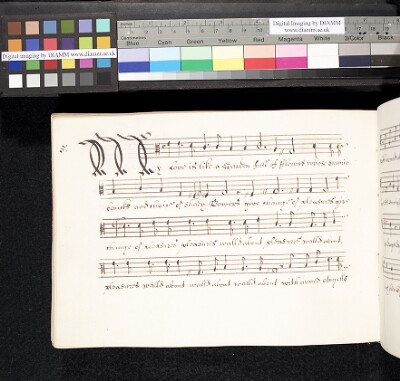 Digital Imaging by DIAMM
www.diamm.ac.uk
Digital Imaging by DIAMM
www.diamm.ac.uk
Inches
Centimetres
Blue Cyan Green Yellow Red Magenta White 3/Color Black
My Love is like a Garden full of flowers whose
and of shady Bowers give change of pleasures
change of pleasures pleasures walld about pleasures walld about,
pleasures walld about walld about walld about with armed